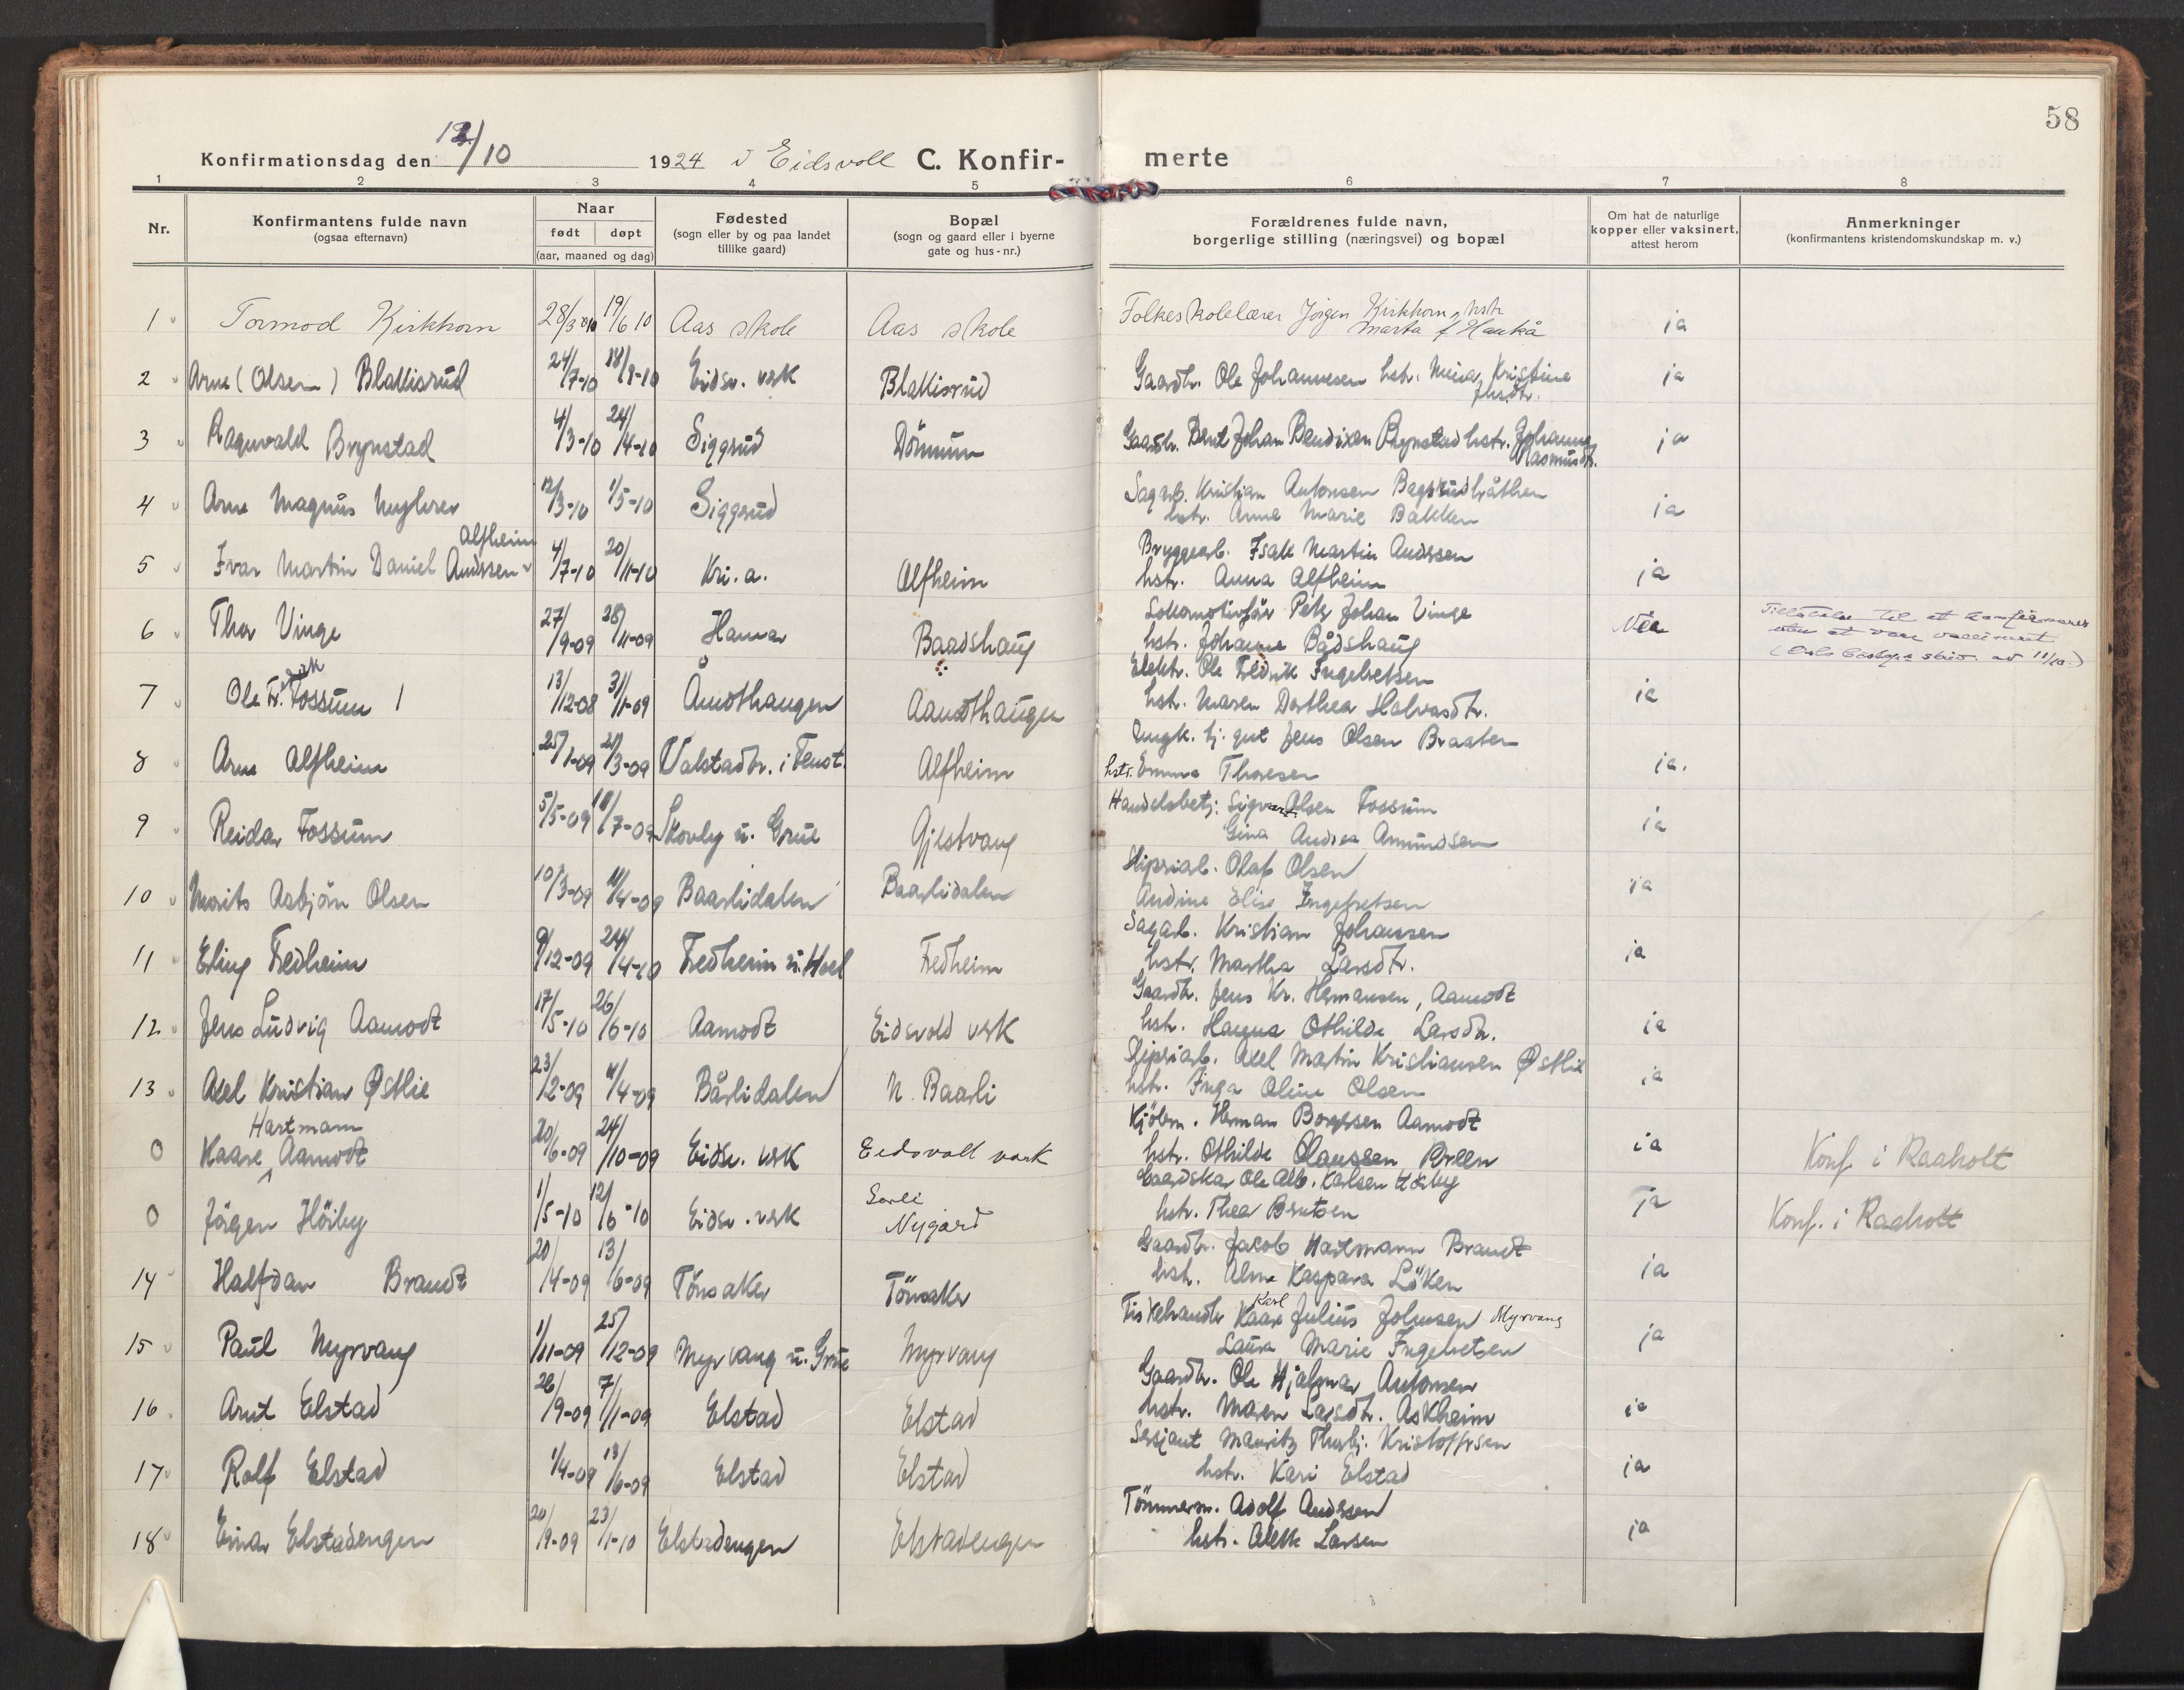 58
Konfirmationsdag den 12/10 1924 i Eidsvoll C. Konfir- merte
1 2 3 4 5 6 7 8
Nr. Konfirmantens fulde navn (ogsaa efternavn) Naar født døpt (aar, maaned og dag) Fødested (sogn eller by og paa landet tillike gaard) Bopæl (sogn og gaard eller i byerne gate og hus-nr.) Forældrenes fulde navn, borgerlige stilling (næringsvei) og bopæl Om hat de naturlige kopper eller vaksinert, attest herom Anmerkninger (konfirmantens kristendomskundskap m. v.)
1 Tormod Kirkhorn 28/3 10 19/6 10 Aas skole Aas skole Folkeskolelærer Jørgen Kirkhorn, hstr Marta f. Haukå ja
2 Arne (Olsen) Blakkisrud 24/7-10 28/8-10 Eidsv. verk Blakkisrud Gaardbr. Ole Johannesen hstr. Mina Kristine ja
3 Ragnvald Brynstad 4/3-10 24/4-10 Siggrud Dönnum Gaardbr. Bent Johan Bendixen Brynstad hstr. Johanne Rasmusdtr. ja
4 Arne Magnus 12/3-10 1/5-10 Siggrud Sagarb. Kristian Antonsen Bagsrudbråthen
hstr. Anne Marie Bakken ja
5 Ivar Martin Daniel Andersen Alfheim 4/7-10 20/11-10 Kri.a. Alfheim Bryggearb. Isak Martin Andersen
hstr. Anna Alfheim ja
6 Thor Vinge 27/9-09 28/11-09 Hamar Baadshaug Lokomotivför Peter Johan Vinge
hstr. Johanne Bådshaug Nei Tillatelse til at konfirmeres
uten at være vaccineret
(Oslo biskops skriv. av 11/10.)
7 Ole Fr. Fossum 13/12-08 31/1-09 Åmodthaugen Aamodthaugen Elektr. Ole Fredrik Ingebretsen
hstr. Maren Dorthea Halvorsdtr. ja
8 Arne Alfheim 25/1-09 21/3-09 Valstadbr. i Fenst. Alfheim Ungk. tj. gut Jens Olsen Braaten
hstr. Emma Thoresen ja.
9 Reidar Fossum 5/5-09 18/7-09 Skovly u. Grue Gjestvang Handelsbetj. Sigvart Olsen Fossum
Gina Andrea Amundsen ja
10 Morits Asbjörn Olsen 10/3-09 11/4-09 Baarlidalen Baarlidalen Sliperiarb. Olaf Olsen
Andine Elise Ingebretsen ja
11 Erling Fredheim 9/12-09 24/4-10 Fredheim u. Hoel Fredheim Sagarb. Kristian Johansen
hstr. Martha Larsdtr. ja
12 Jens Ludvig Aamodt 17/5-10 26/6-10 Aamodt Eidsvold verk Gaardbr. Jens Kr. Hermansen, Aamodt
hstr. Hanna Othilde Larsdtr. ja
13 Axel Kristian Østlie 23/12-09 11/4-09 Bårlidalen N. Baarli Sliperiarb. Axel Martin Kristiansen Østlie
hstr. Inga Oline Olsen ja
0 Kaare Hartmann Aamodt 20/6-09 24/10-09 Eidsv. verk Eidsvoll verk Kjöbm. Herman Borgersen Aamodt
hstr. Othilde Olaussen Breen ja Konf. i Raaholt
0 Jörgen Höiby 1/5-10 12/6-10 Eidsv. verk Nygård Gaardskar Ole Alb. Karlsen Höiby
hstr. Thea Berntsen ja Konf. i Raaholt
14 Halfdan Brandt 20/4-09 13/6-09 Tönsaker Tönsaker Gaardbr. Jacob Hartmann Brandt
hstr. Alma Kaspara Löken ja
15 Paul Myrvang 1/11-09 25/12-09 Myrvang u. Grue Myrvang Fiskehandler Karl Julius Johnsen Myrvang
Laura Marie Ingebretsen ja
16 Arnt Elstad 26/9-09 7/11-09 Elstad Elstad Gaardbr. Ole Hjalmar Antonsen
hstr. Maren Larsdtr. Askheim ja
17 Rolf Elstad 1/4-09 13/6-09 Elstad Elstad Sersjant Mauritz Thorbj. Kristoffersen
hstr. Kari Elstad ja
18 Einar Elstadengen 20/9-09 23/1-10 Elstadengen Elstadengen Tömmerm. Adolf Andersen
hstr. Alette Larsen ja